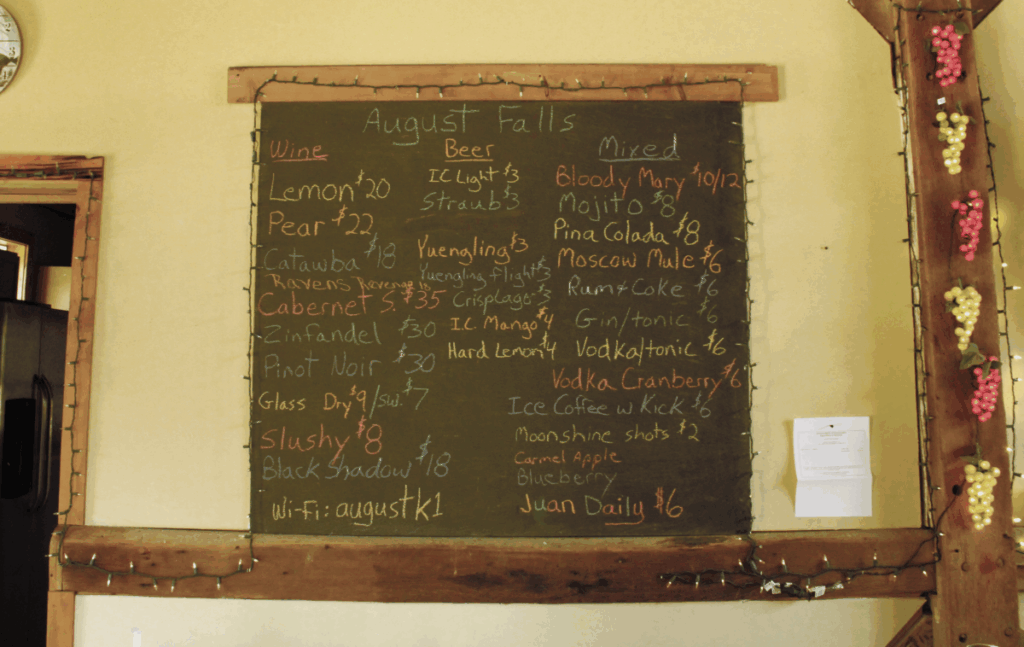 August Falls
Wine
Lemon $20
Pear $22
Catawba $18
Ravens Revenge
Cabernet S. $35
Zinfandel $30
Pinot Noir $30
Glass Dry $9/sw. $7
Slushy $8
Black Shadow $18
Wi-Fi: augustk1
Beer
IC Light $3
Straub $3
Yuengling $3
Yuengling flight $3
Crisp Lager $3
I.C. Mango $4
Hard Lemon $4
Mixed
Bloody Mary $10/12
Mojito $8
Pina Colada $8
Moscow Mule $6
Rum & Coke $6
Gin/tonic $6
Vodka/tonic $6
Vodka Cranberry $6
Ice Coffee w Kick $6
Moonshine shots $2
Carmel Apple
Blueberry
Juan Daily $6